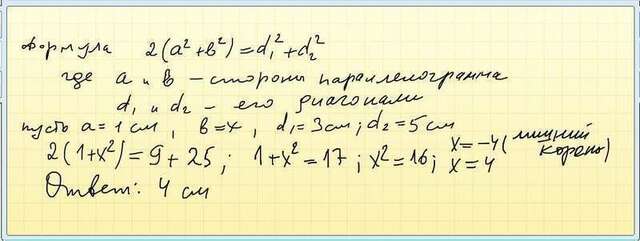 Формула 2(a²+b²)=d₁²+d₂²
где a и b – стороны параллелограмма
d₁ и d₂ – его диагонали
пусть a=1 см, b=x, d₁=3см; d₂=5 см
2(1+x²)=9+25; 1+x²=17; x²=16; x=-4 (лишний корень) x=4
Ответ: 4 см